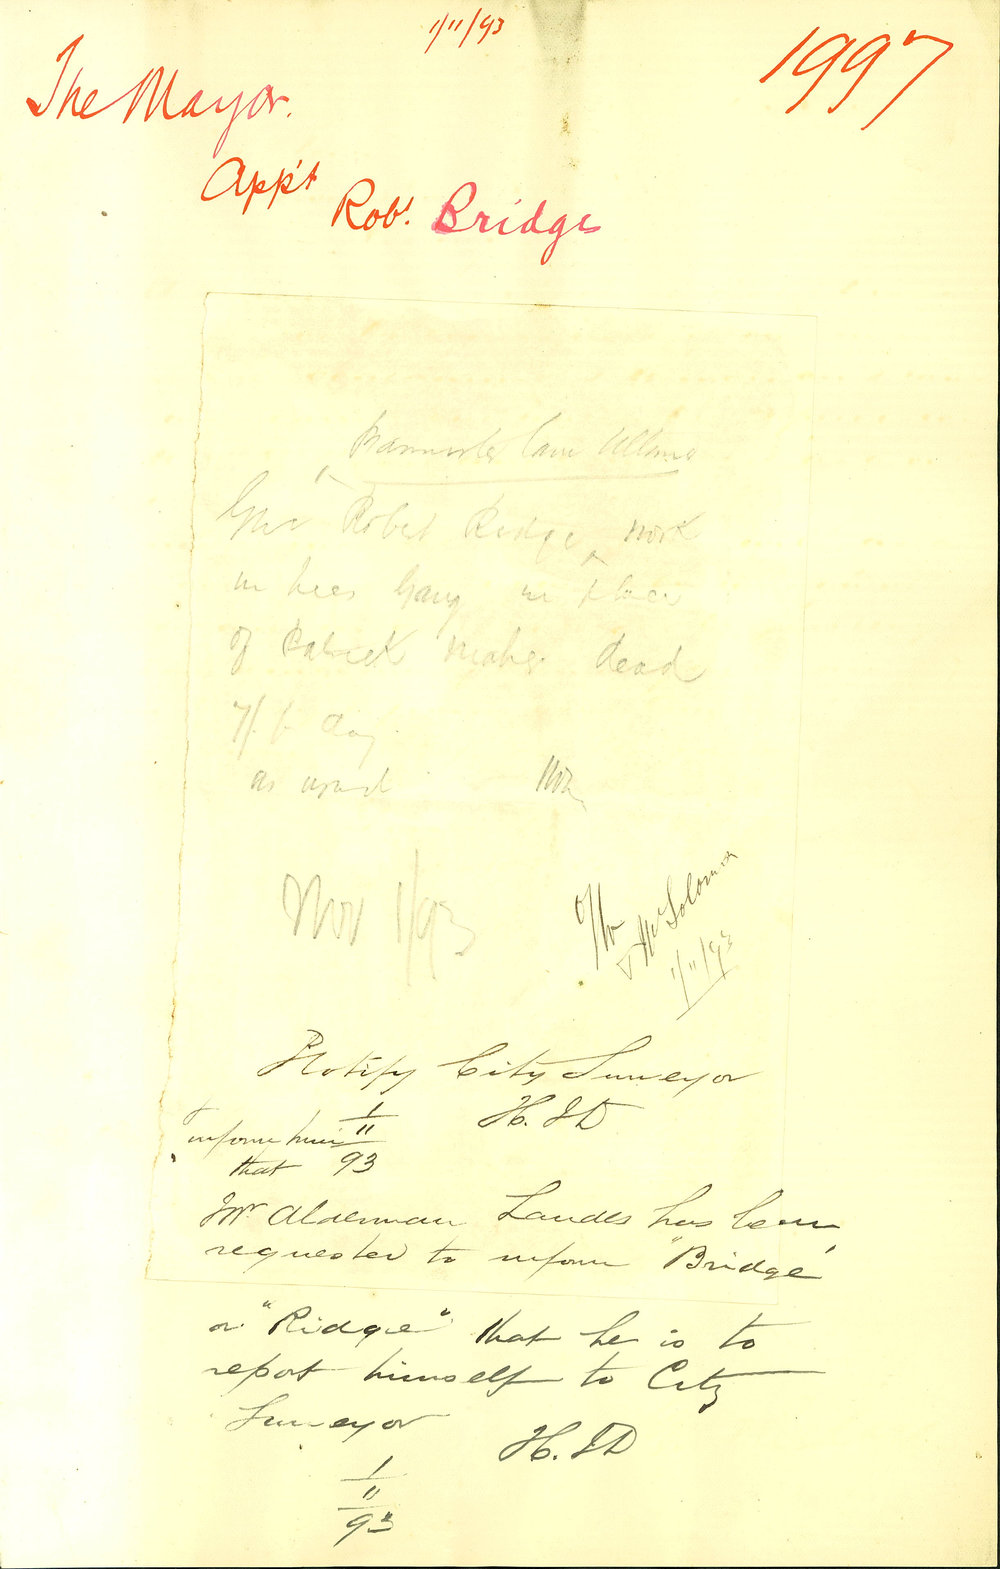 1/11/93
1997
The Mayor.
App't
Robt. Bridge
Lane Ultimo
Give Robert Ridge work
in Lees Gang in place
of Patrick Maher dead
7/- day
as usual
Nov 1/93
1/11/93
Notify City Surveyor
H. JD
1/11/93
inform him
that
Mr Alderman Landes has been
requested to inform "Bridge"
or "Ridge" that he is to
report himself to City
Surveyor
H. JD
1/11/93